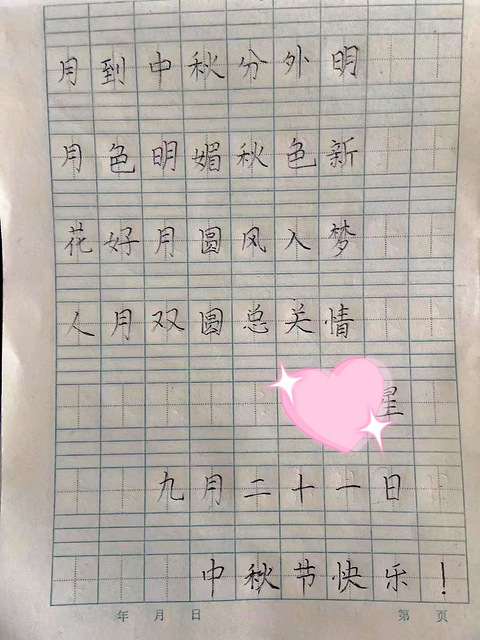 月到中秋分外明
月色明媚秋色新
花好月圆风入梦
人月双圆总关情
星
九月二十一日
中秋节快乐！
年 月 日 第 页